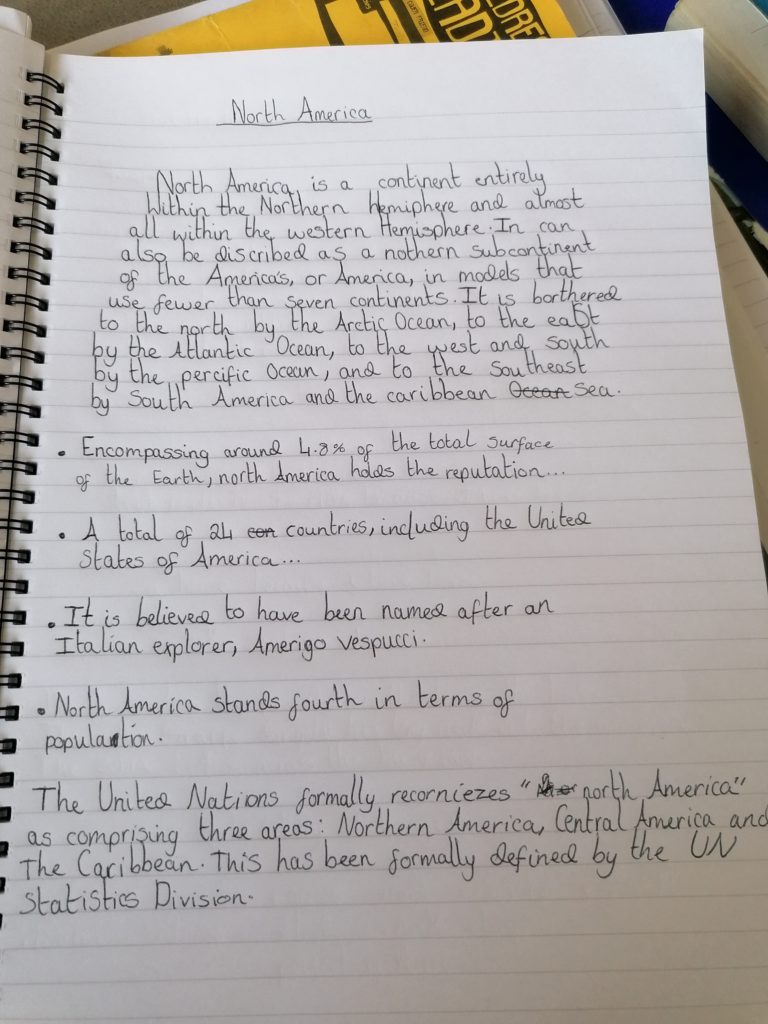 North America
North America, is a continent entirely
Within the Northern hemiphere and almost
all within the western Hemisphere. In can
also be discribed as a nothern subcontinent
of the America's, or America, in models that
use fewer than seven continents. It is borthered
to the north by the Arctic Ocean, to the east
by the Atlantic Ocean, to the west and south
by the percific Ocean, and to the Southeast
by South America and the caribbean Ocean Sea.
• Encompassing around 4.8% of the total surface
of the Earth, north America holds the reputation...
• A total of 24 con countries, including the United
States of America...
• It is believed to have been named after an
Italian explorer, Amerigo vespucci.
• North America stands fourth in terms of
population.
The United Nations formally recorniezes " north America"
as comprising three areas: Northern America, Central America and
The Caribbean. This has been formally defined by the UN
Statistics Division.